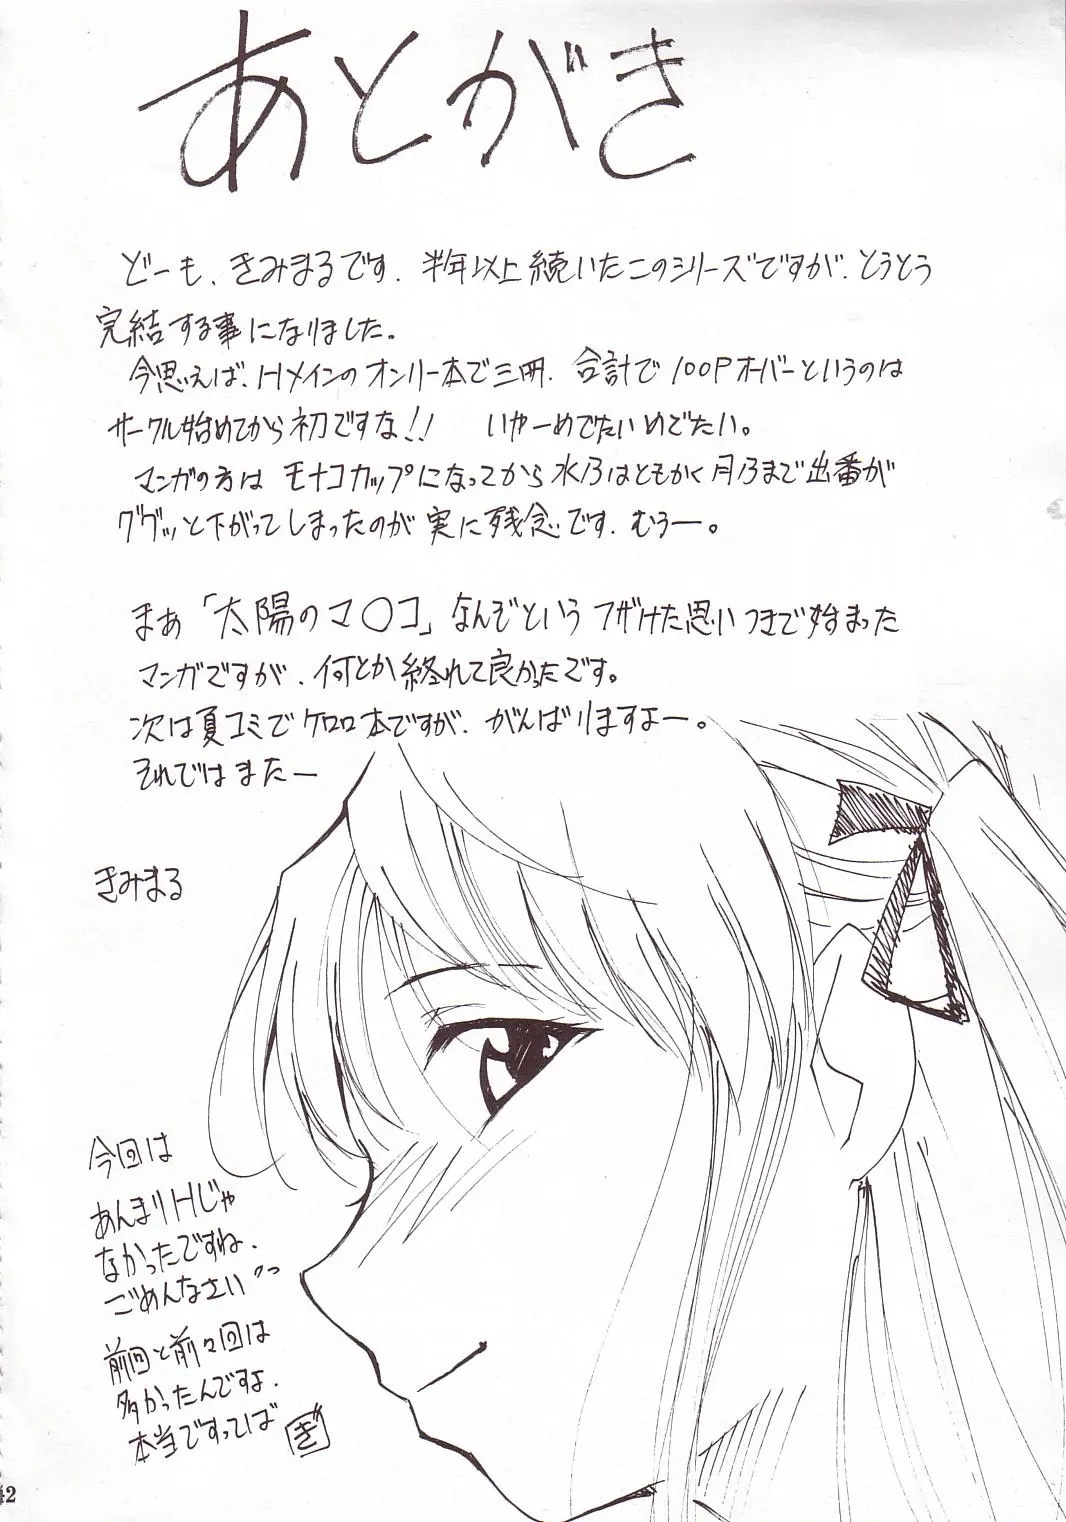 あとがき
どーも、きみまるです。半年以上続いたこのシリーズですが、とうとう
完結する事になりました。
今思えば、Hメインのオンリー本で三冊、合計で100Pオーバーというのは
サークル始めてから初ですな!! いやーめでたいめでたい。
マンガの方はモナコカップになってから水乃はともかく月乃まで出番が
ググッと下がってしまったのが実に残念です。むうー。
まぁ「太陽のマ○コ」なんぞというフザけた思いつきで始まった
マンガですが、何とか終れて良かったです。
次は夏コミでケロロ本ですが、がんばりますよー。
それではまたー
きみまる
今回は
あんまりHじゃ
なかったですね、
ごめんなさい
前回と前々回は
多かったんですよ、
本当ですってば
42